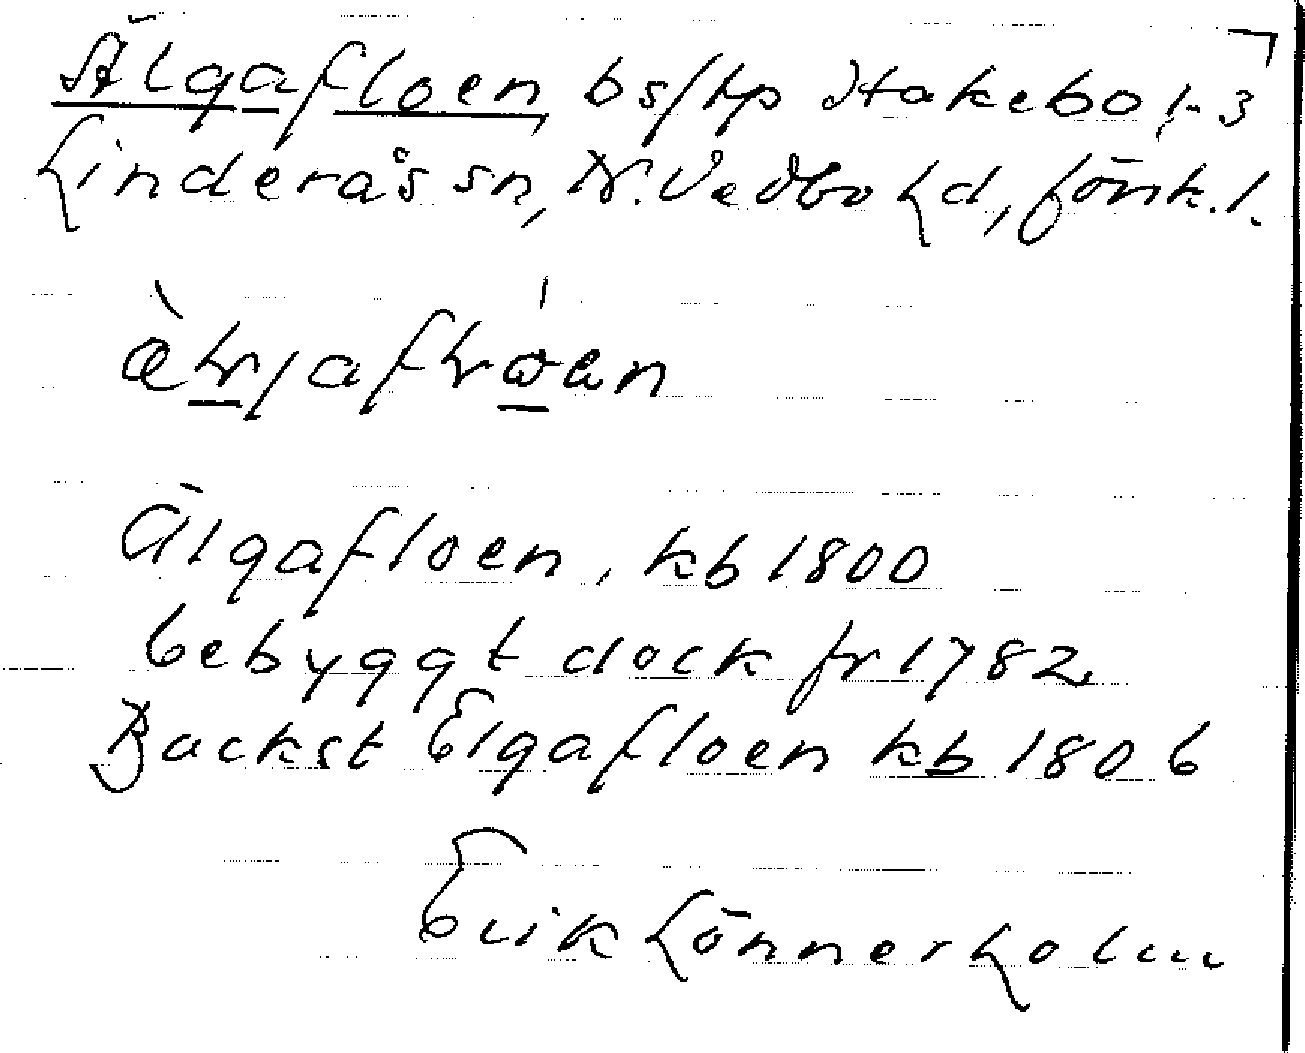 Älgafloen bs/tp Hakebo 1-3
Linderås sn, N. Vedbo hd, Jönk. l.
Älgafloen, kb 1800
bebyggt dock fr 1782
Backst Elgafloen kb 1806
Erik Lönnerholm